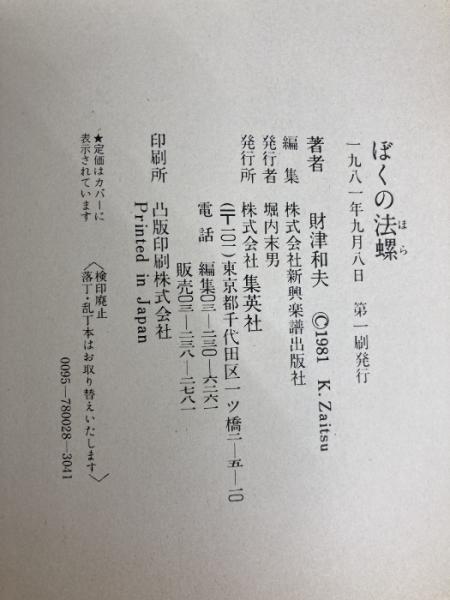 ぼくの法螺
ほら
一九八一年九月八日 第一刷発行
著者 財津和夫 ©1981 K. Zaitsu
編集 株式会社新興楽譜出版社
発行者 堀内末男
発行所 株式会社 集英社
(〒一〇一)東京都千代田区一ツ橋二―五―一〇
電話 編集〇三―二三〇―六二六一
販売〇三―二三八―二七八一
印刷所 凸版印刷株式会社
Printed in Japan
★定価はカバーに
表示されています
〈検印廃止
落丁・乱丁本はお取り替えいたします〉
0095―780028―3041